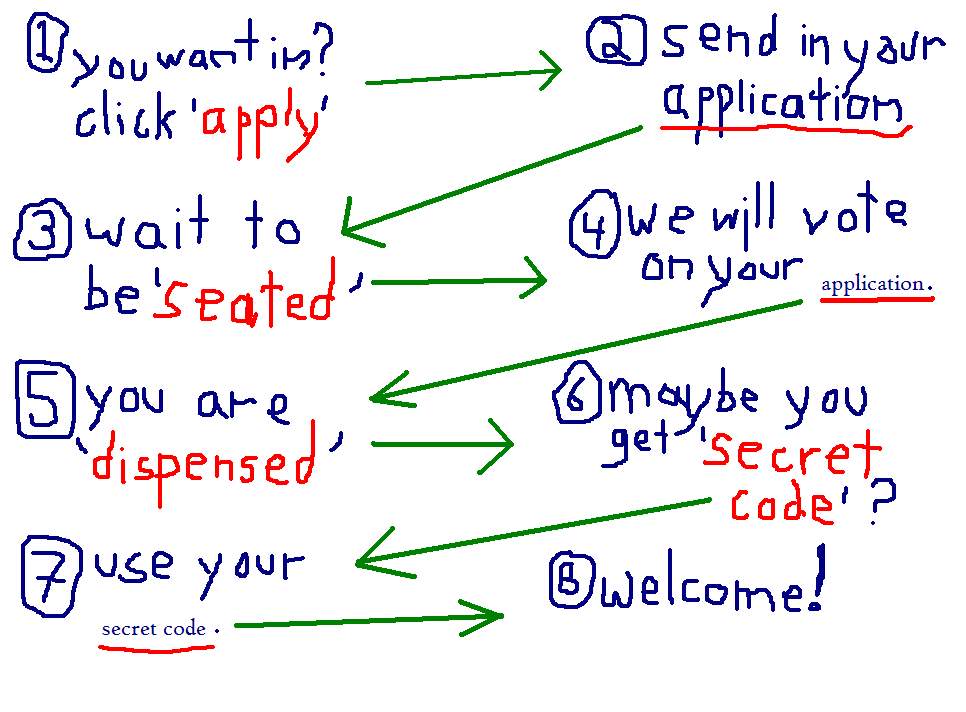 1 you want in?
click 'apply'
2 send in your
application
3 wait to
be 'seated'
4 we will vote
on your
application.
5 you are
'dispensed'
6 maybe you
get 'secret
code'?
7 use your
secret code.
8 welcome!